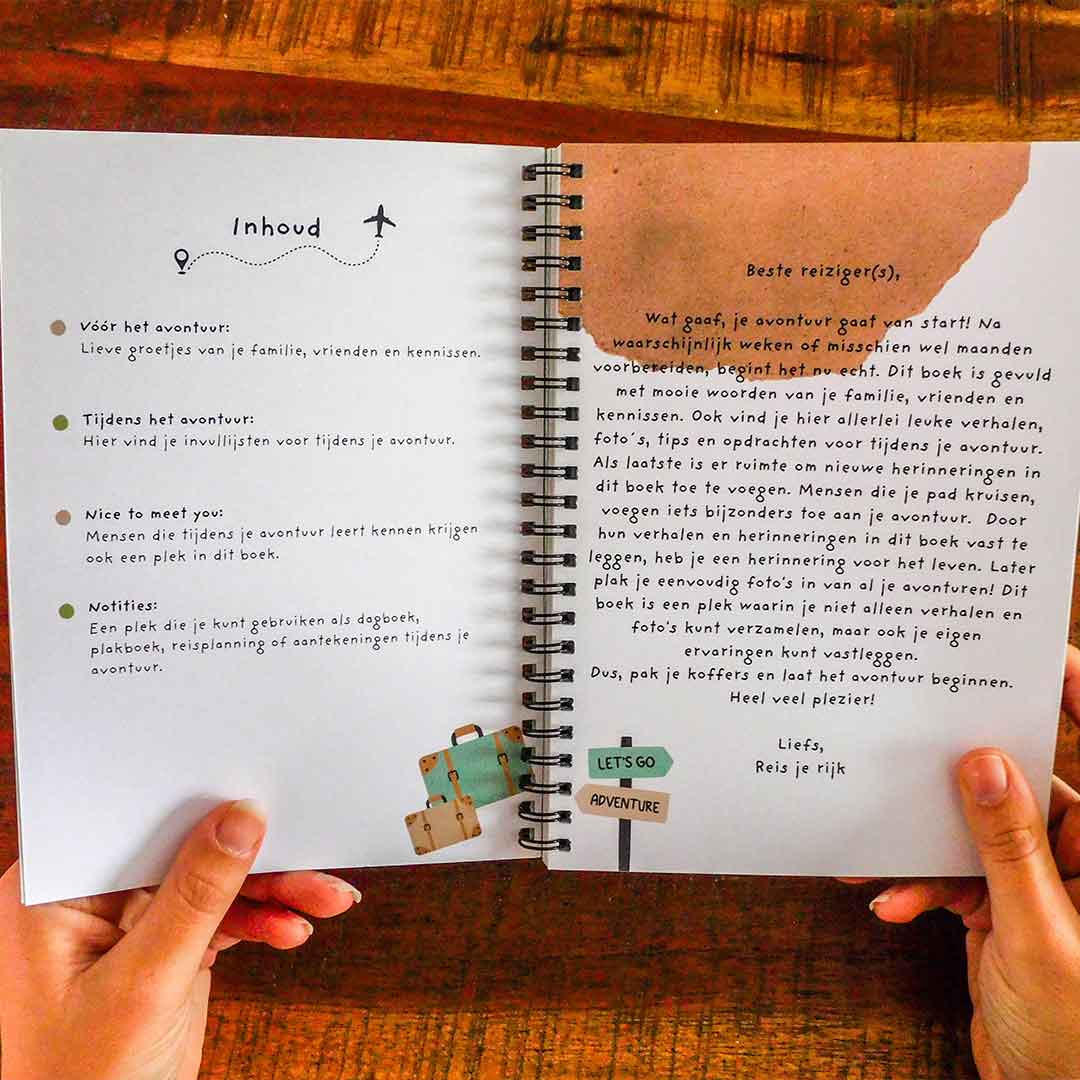 Inhoud
Vóór het avontuur:
Lieve groetjes van je familie, vrienden en kennissen.
Tijdens het avontuur:
Hier vind je invullijsten voor tijdens je avontuur.
Nice to meet you:
Mensen die tijdens je avontuur leert kennen krijgen
ook een plek in dit boek.
Notities:
Een plek die je kunt gebruiken als dagboek,
plakboek, reisplanning of aantekeningen tijdens je
avontuur.
Beste reiziger(s),
Wat gaaf, je avontuur gaat van start! Na
waarschijnlijk weken of misschien wel maanden
voorbereiden, begint het nu echt. Dit boek is gevuld
met mooie woorden van je familie, vrienden en
kennissen. Ook vind je hier allerlei leuke verhalen,
foto's, tips en opdrachten voor tijdens je avontuur.
Als laatste is er ruimte om nieuwe herinneringen in
dit boek toe te voegen. Mensen die je pad kruisen,
voegen iets bijzonders toe aan je avontuur. Door
hun verhalen en herinneringen in dit boek vast te
leggen, heb je een herinnering voor het leven. Later
plak je eenvoudig foto's in van al je avonturen! Dit
boek is een plek waarin je niet alleen verhalen en
foto's kunt verzamelen, maar ook je eigen
ervaringen kunt vastleggen.
Dus, pak je koffers en laat het avontuur beginnen.
Heel veel plezier!
Liefs,
Reis je rijk
LET'S GO
ADVENTURE